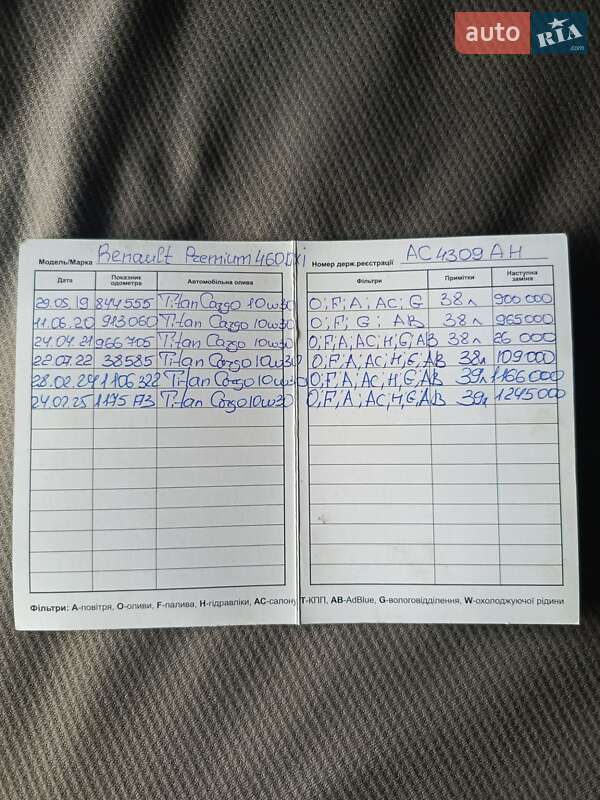 auto RIA .com
Модель/Марка Renault Premium 460DXI Номер держ.реєстрації AC 4309 AH
Дата Показник одометра Автомобільна олива Фільтри Примітки Наступна заміна
29.05.19 844555 Titan Cargo 10w30 O; F; A; AC; G 38л 900 000
11.06.20 913060 Titan Cargo 10w30 O; F; G; AB 38л 965000
24.04.21 966705 Titan Cargo 10w30 O; F; A; AC; H; G; AB 38л 26 000
22.07.22 38585 Titan Cargo 10w30 O; F; A; AC; H; G; AB 38л 109000
28.02.24 1106322 Titan Cargo 10w30 O; F; A; AC; H; G; AB 39л 1166000
24.02.25 Titan Cargo 10w30 O; F; A; AC; H; G; AB 39л 1245000
Фільтри: A-повітря, O-оливи, F-палива, H-гідравліки, AC-салону, T-КПП, AB-AdBlue, G-вологовідділення, W-охолоджуючої рідини